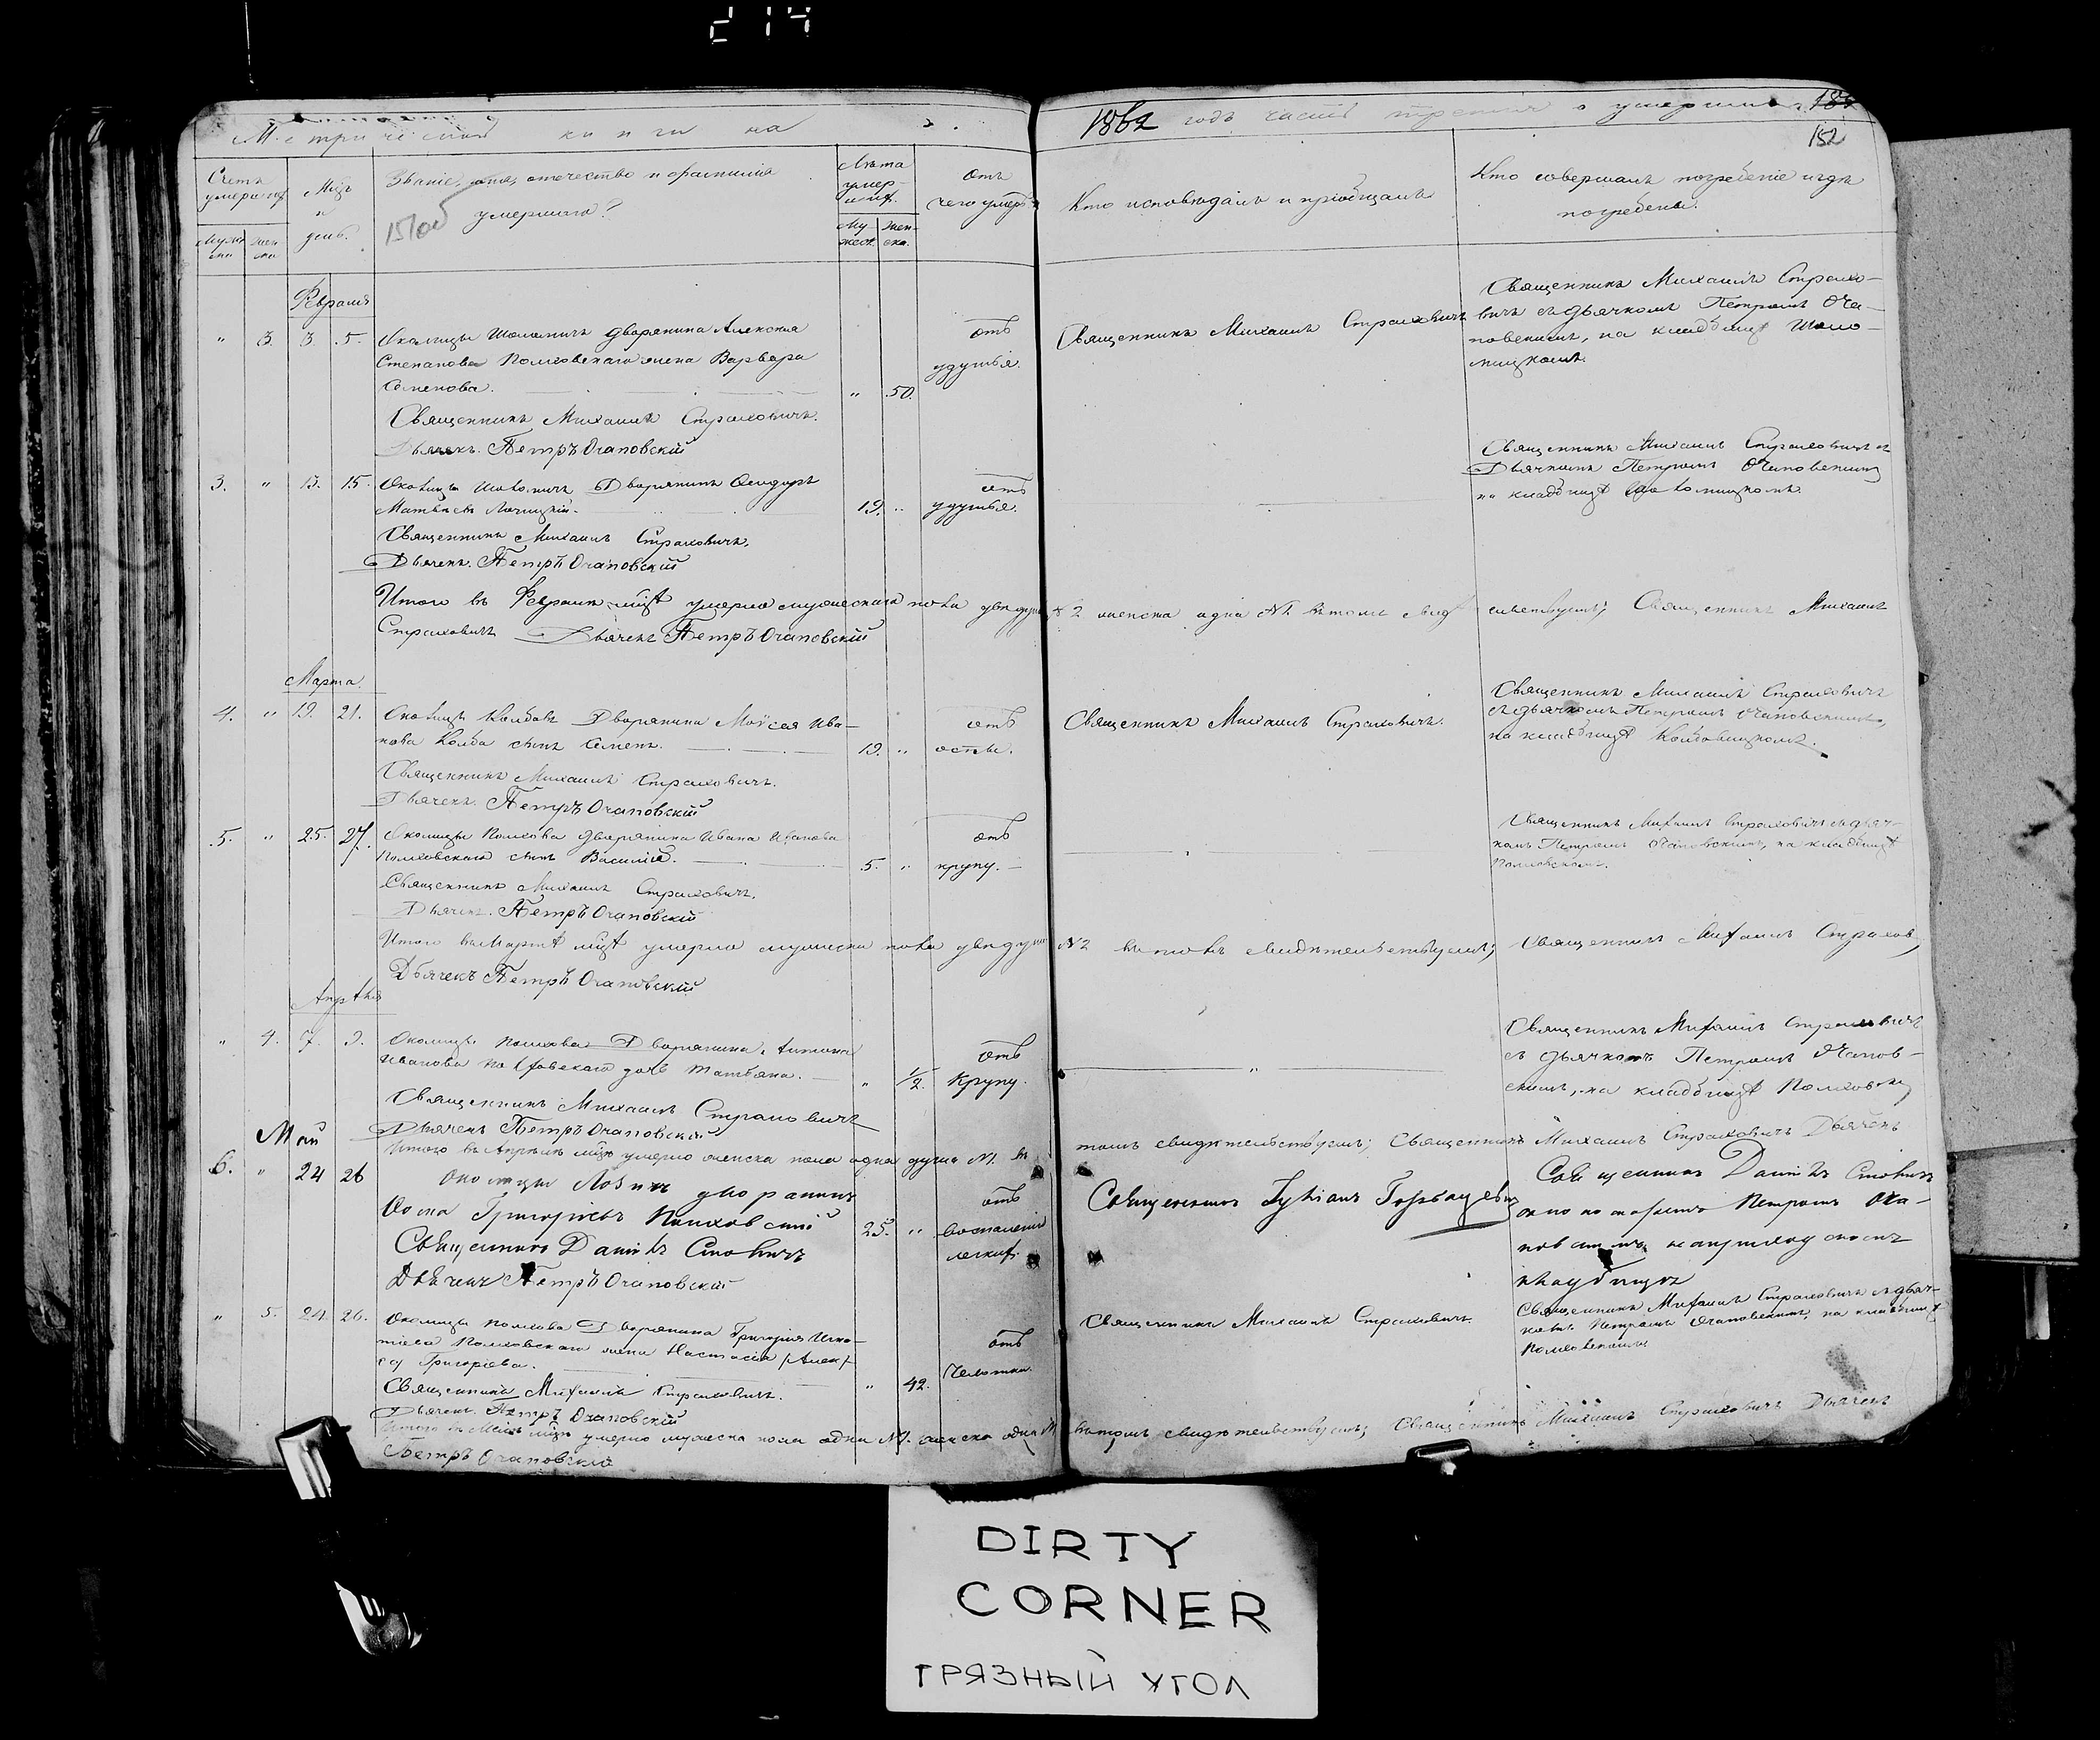 214
Метрической книги на
1862 годъ часть третія о умершихъ.
152
Счетъ умершихъ
Муже ска
Жен ска
Мцъ и день.
Званіе, имя, отечество и фамилія
умершаго?
Лѣта умер-шихъ.
Му-жеск.
Жен-ска.
Отъ
чего умеръ
Кто исповѣдалъ и пріобщалъ
Кто совершалъ погребеніе и гдѣ
погребены.
Февраля
" 3. 3. 5. Околицы Шоломичъ дворянина Алексѣя
Степанова Полховскаго жена Варвара
Семенова. " 50.
отъ
удушья.
Священникъ Михаилъ Страховичъ
Священникъ Михаилъ Страхо-
вичъ съ дьячкомъ Петромъ Оча-
повскимъ, на кладбищѣ Шоло-
мицкомъ.
Священникъ Михаилъ Страховичъ.
Дьячекъ. Петръ Очаповскій
3. " 13. 15. Околицы Шоломичъ Дворянинъ
Матвѣевъ 19. "
отъ
удушья.
Священникъ Михаилъ Страховичъ съ
Дьячкомъ Петромъ Очаповскимъ
на кладбищѣ Шоломицкомъ.
Священникъ Михаилъ Страховичъ.
Дьячекъ. Петръ Очаповскій
Итого въ Февралѣ мцѣ умерло мужескаго пола двѣ души № 2 женска одна №1. въ томъ свидѣтельствуемъ; Священникъ Михаилъ
Страховичъ Дьячекъ Петръ Очаповскій
Марта.
4. " 19. 21. Околицы Колбовъ Дворянина Моѵсея Ива-
нова Колба сынъ Семенъ. 19. "
отъ
оспы.
Священникъ Михаилъ Страховичъ.
Священникъ Михаилъ Страховичъ
съ дьячкомъ Петромъ Очаповскимъ,
на кладбищѣ Колбовицкомъ.
Священникъ Михаилъ Страховичъ.
Дьячекъ. Петръ Очаповскій
5. " 25. 27. Околицы Полхова дворянина Ивана Иванова
Полховскаго сынъ Василій. 5. "
отъ
крупу.
Священникъ Михаилъ Страховичъ съ дьяч-
комъ Петромъ Очаповскимъ, на кладбищѣ
Полховскомъ.
Священникъ Михаилъ Страховичъ.
Дьячекъ. Петръ Очаповскій
Итого въ Мартѣ мцѣ умерло мужеска пола двѣ души №2 въ томъ свидѣтельствуемъ; Священникъ Михаилъ Страхов
Дьячекъ Петръ Очаповскій
Апрѣля
" 4. 7. 9. Околицы Полхова Дворянина Антона
Иванова Полховскаго дочь Татьяна. " 1/2.
отъ
Крупу.
Священникъ Михаилъ Страховичъ
съ дьячкомъ Петромъ Очапов-
скимъ, на кладбищѣ Полховском
Священникъ Михаилъ Страховичъ
Дьячекъ Петръ Очаповскій
Итого въ Апрѣлѣ мцѣ умерло женска пола одна душа №1. въ томъ свидѣтельствуемъ; Священникъ Михаилъ Страховичъ Дьячекъ
Май
6. " 24 26 Околицы дворянинъ
Фома Григорьевъ Полховскій 25. "
отъ
воспаленія
легкихъ.
Священникъ
Священникъ Даніилъ
Петромъ Оча-
кладбищѣ
Священникъ Даніилъ
Дьячекъ Петръ Очаповскій
" 5. 24. 26. Околицы Полхова Дворянина Григорія Игна-
тіева Полховскаго жена Настасія
Григорьева. " 42.
отъ
Чахотки.
Священникъ Михаилъ Страховичъ.
Священникъ Михаилъ Страховичъ съ дьяч-
комъ Петромъ Очаповскимъ, на кладбищѣ
Полховскомъ
Священникъ Михаилъ Страховичъ.
Дьячекъ. Петръ Очаповскій
Итого въ Маѣ мцѣ умерло мужеска пола одна №1. женска одна №1 въ томъ свидѣтельствуемъ; Священникъ Михаилъ Страховичъ Дьячекъ
Петръ Очаповскій
DIRTY
CORNER
ГРЯЗНЫЙ УГОЛ